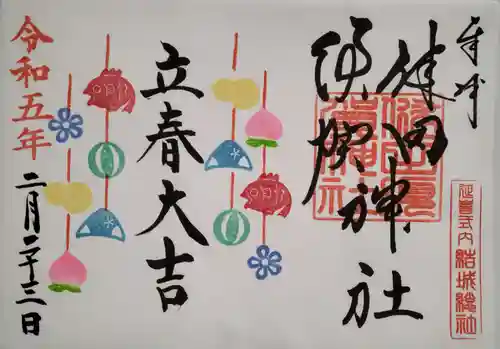 奉拝
延喜式内 結城總社
健田
須賀
神社
立春大吉
令和五年
二月二十三日